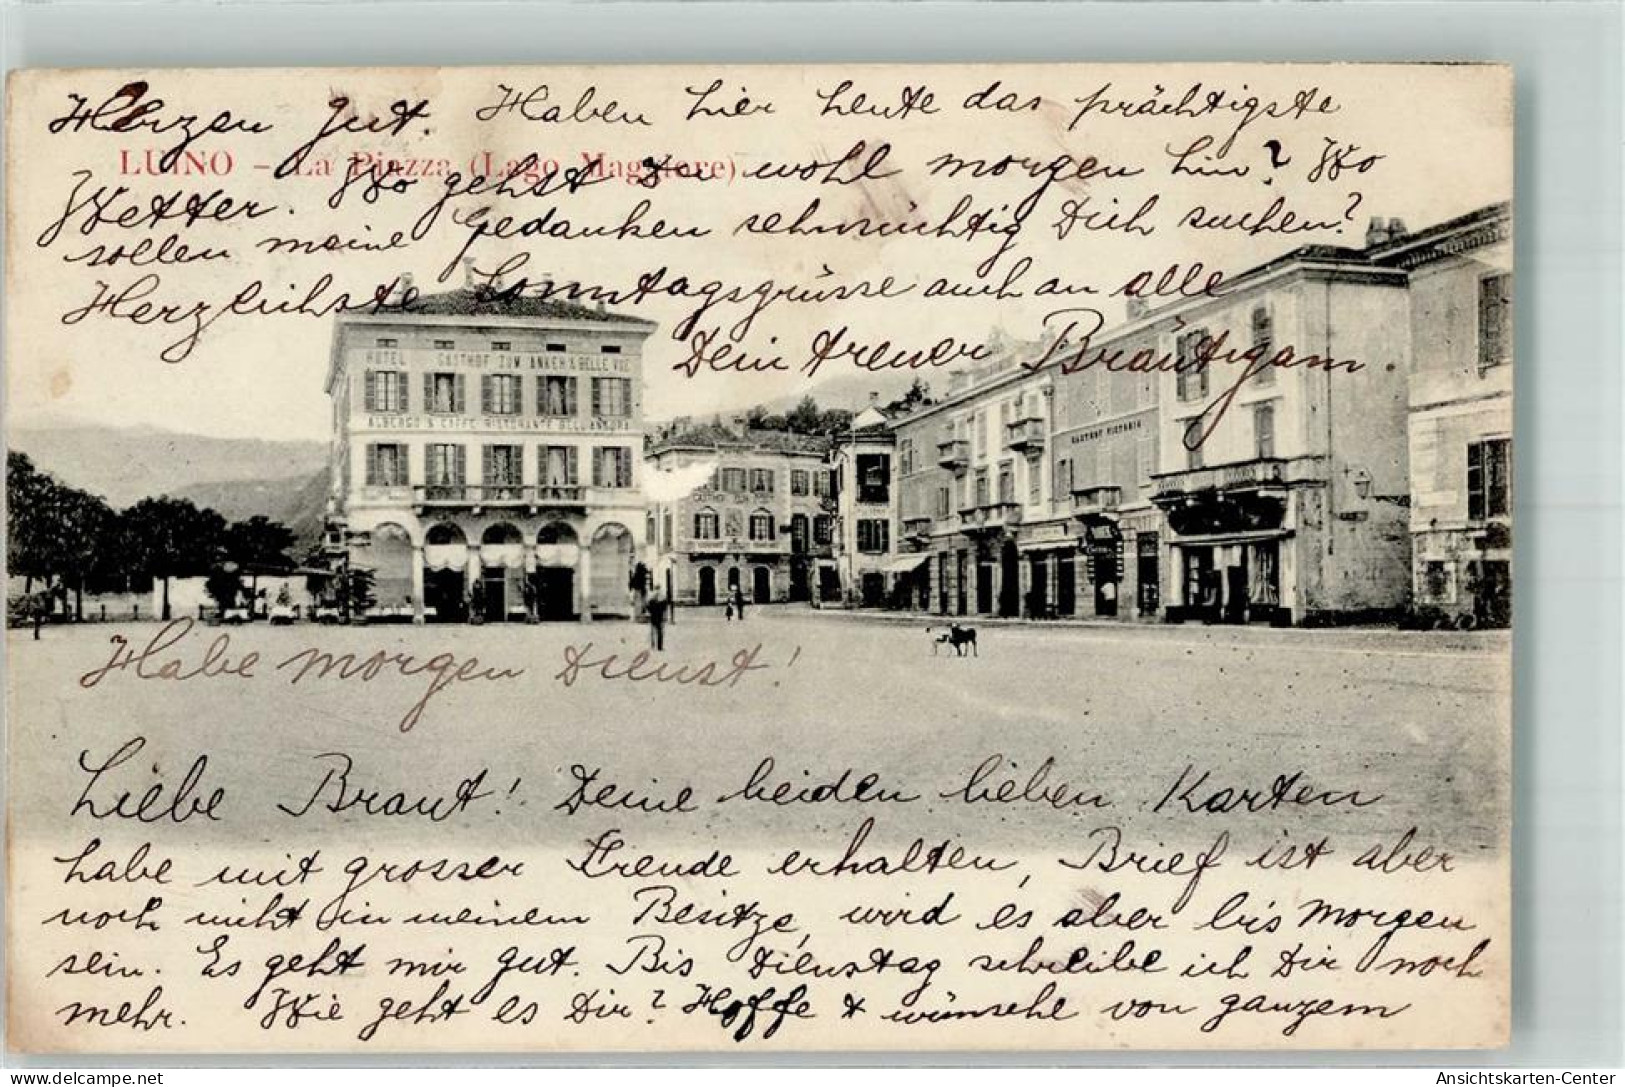 Herzen gut. Haben hier heute das prächtigste
LUINO – La Piazza (Lago Maggiore).
Wetter. Wo gehst Du wohl morgen hin? Wo
sollen meine Gedanken sehnsüchtig Dich suchen?
Herzlichste Sonntagsgrüsse auch an alle
Dein treuer Bräutigam.
HOTEL GASTHOF ZUM ANKER & BELLE VUE
ALBERGO & CAFFE RISTORANTE DELL'ANCORA
GASTHOF VICTORIA
GASTHOF ZUM
Habe morgen Dienst!
Liebe Braut! Deine beiden lieben Karten
habe mit grosser Freude erhalten, Brief ist aber
noch nicht in meinem Besitze, wird es aber bis morgen
sein. Es geht mir gut. Bis Dienstag schreibe ich Dir noch
mehr. Wie geht es Dir? Hoffe & wünsche von ganzem
delcampe.net
Ansichtskarten-Center